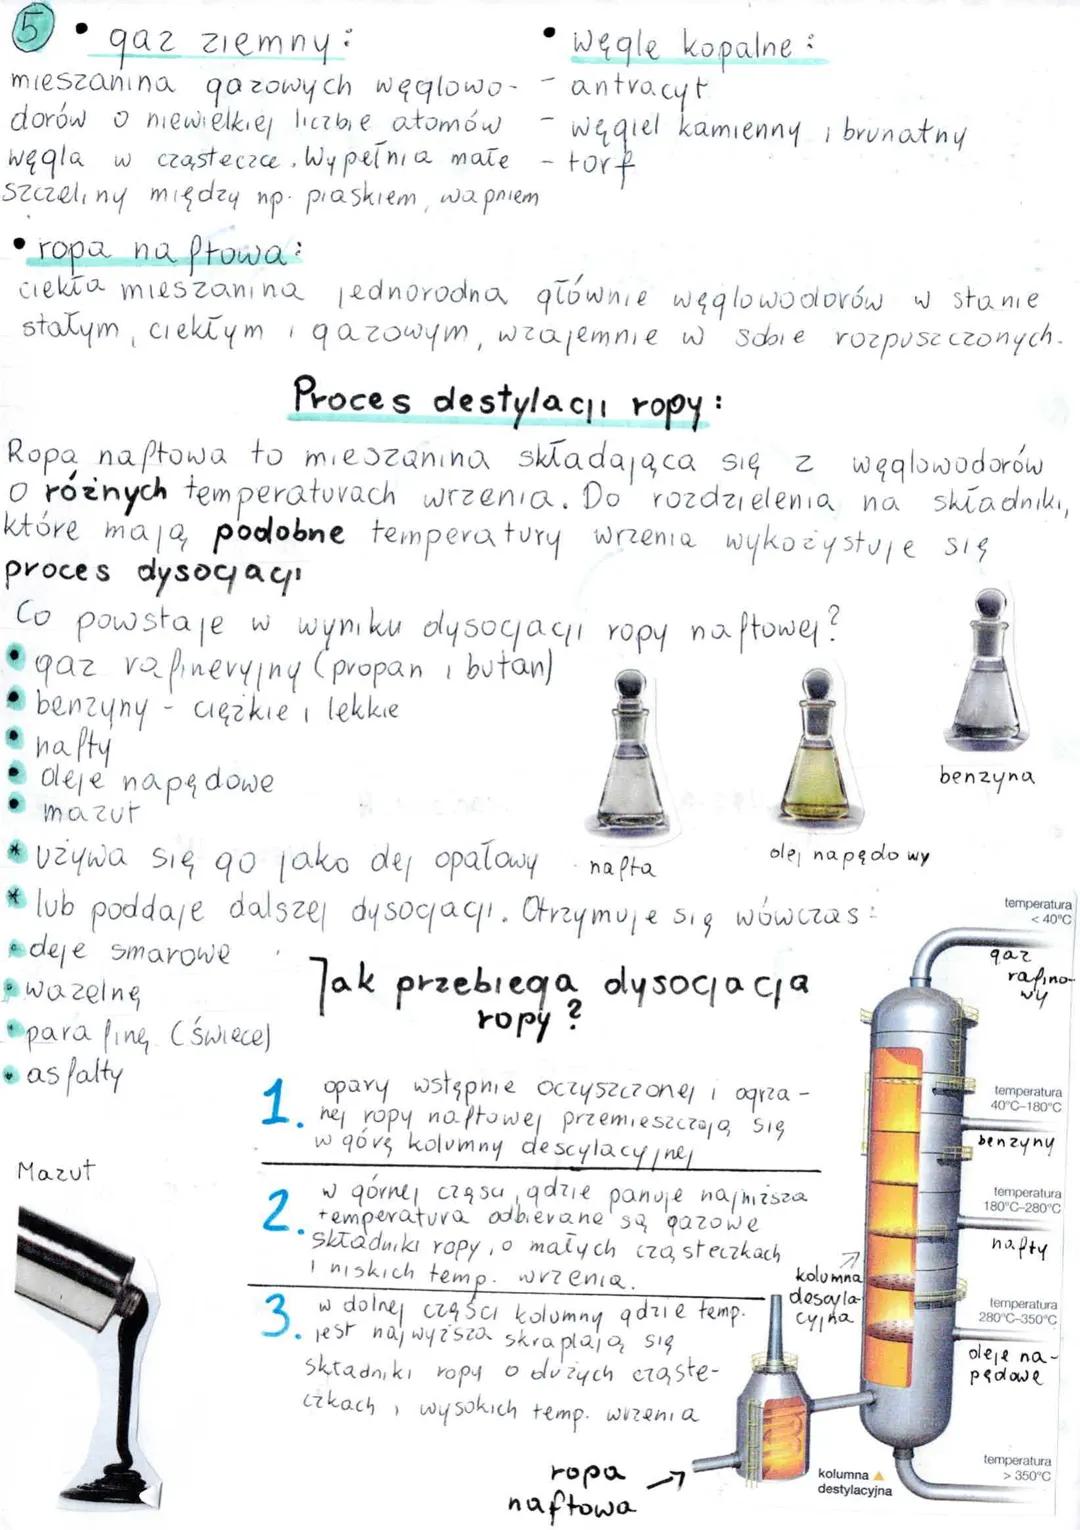 5 • gaz ziemny:
mieszanina gazowych węglowo-
dorów o niewielkiej liczbie atomów
węgla w cząsteczce. Wypełnia małe
szczeliny między np. piaskiem, wapniem
• węgle kopalne:
- antracyt
- węgiel kamienny i brunatny
- torf
• ropa naftowa:
ciekła mieszanina jednorodna głównie węglowodorów w stanie
stałym, ciekłym i gazowym, wzajemnie w sobie rozpuszczonych.
Proces destylacji ropy:
Ropa naftowa to mieszanina składająca się z węglowodorów
o różnych temperaturach wrzenia. Do rozdzielenia na składniki,
które mają podobne temperatury wrzenia wykożystuje się
proces dysocjacji
Co powstaje w wyniku dysocjacji ropy naftowej?
• gaz rafineryjny (propan i butan)
• benzyny - ciężkie i lekkie
• nafty
• oleje napędowe
• mazut
* używa się go jako olej opałowy
* lub poddaje dalszej dysocjacji. Otrzymuje się wówczas:
• oleje smarowe
• wazelnę
• parafinę (świece)
• asfalty
nafta
olej napędowy
benzyna
Jak przebiega dysocjacja
ropy?
1. opary wstępnie oczyszczonej i ogrza-
nej ropy naftowej przemieszczają się
w górę kolumny descylacyjnej
2. w górnej częsci, gdzie panuje najniższa
temperatura odbierane są gazowe
składniki ropy, o małych cząsteczkach
i niskich temp. wrzenia.
3. w dolnej części kolumny gdzie temp.
jest najwyższa skraplają się
składniki ropy o dużych cząste-
czkach i wysokich temp. wrzenia
Mazut
temperatura
< 40°C
gaz
rafino-
wy
temperatura
40°C-180°C
benzyny
temperatura
180°C-280°C
nafty
kolumna
descyla-
cyjna
temperatura
280°C-350°C
oleje na-
pędowe
temperatura
> 350°C
kolumna
destylacyjna
ropa
naftowa